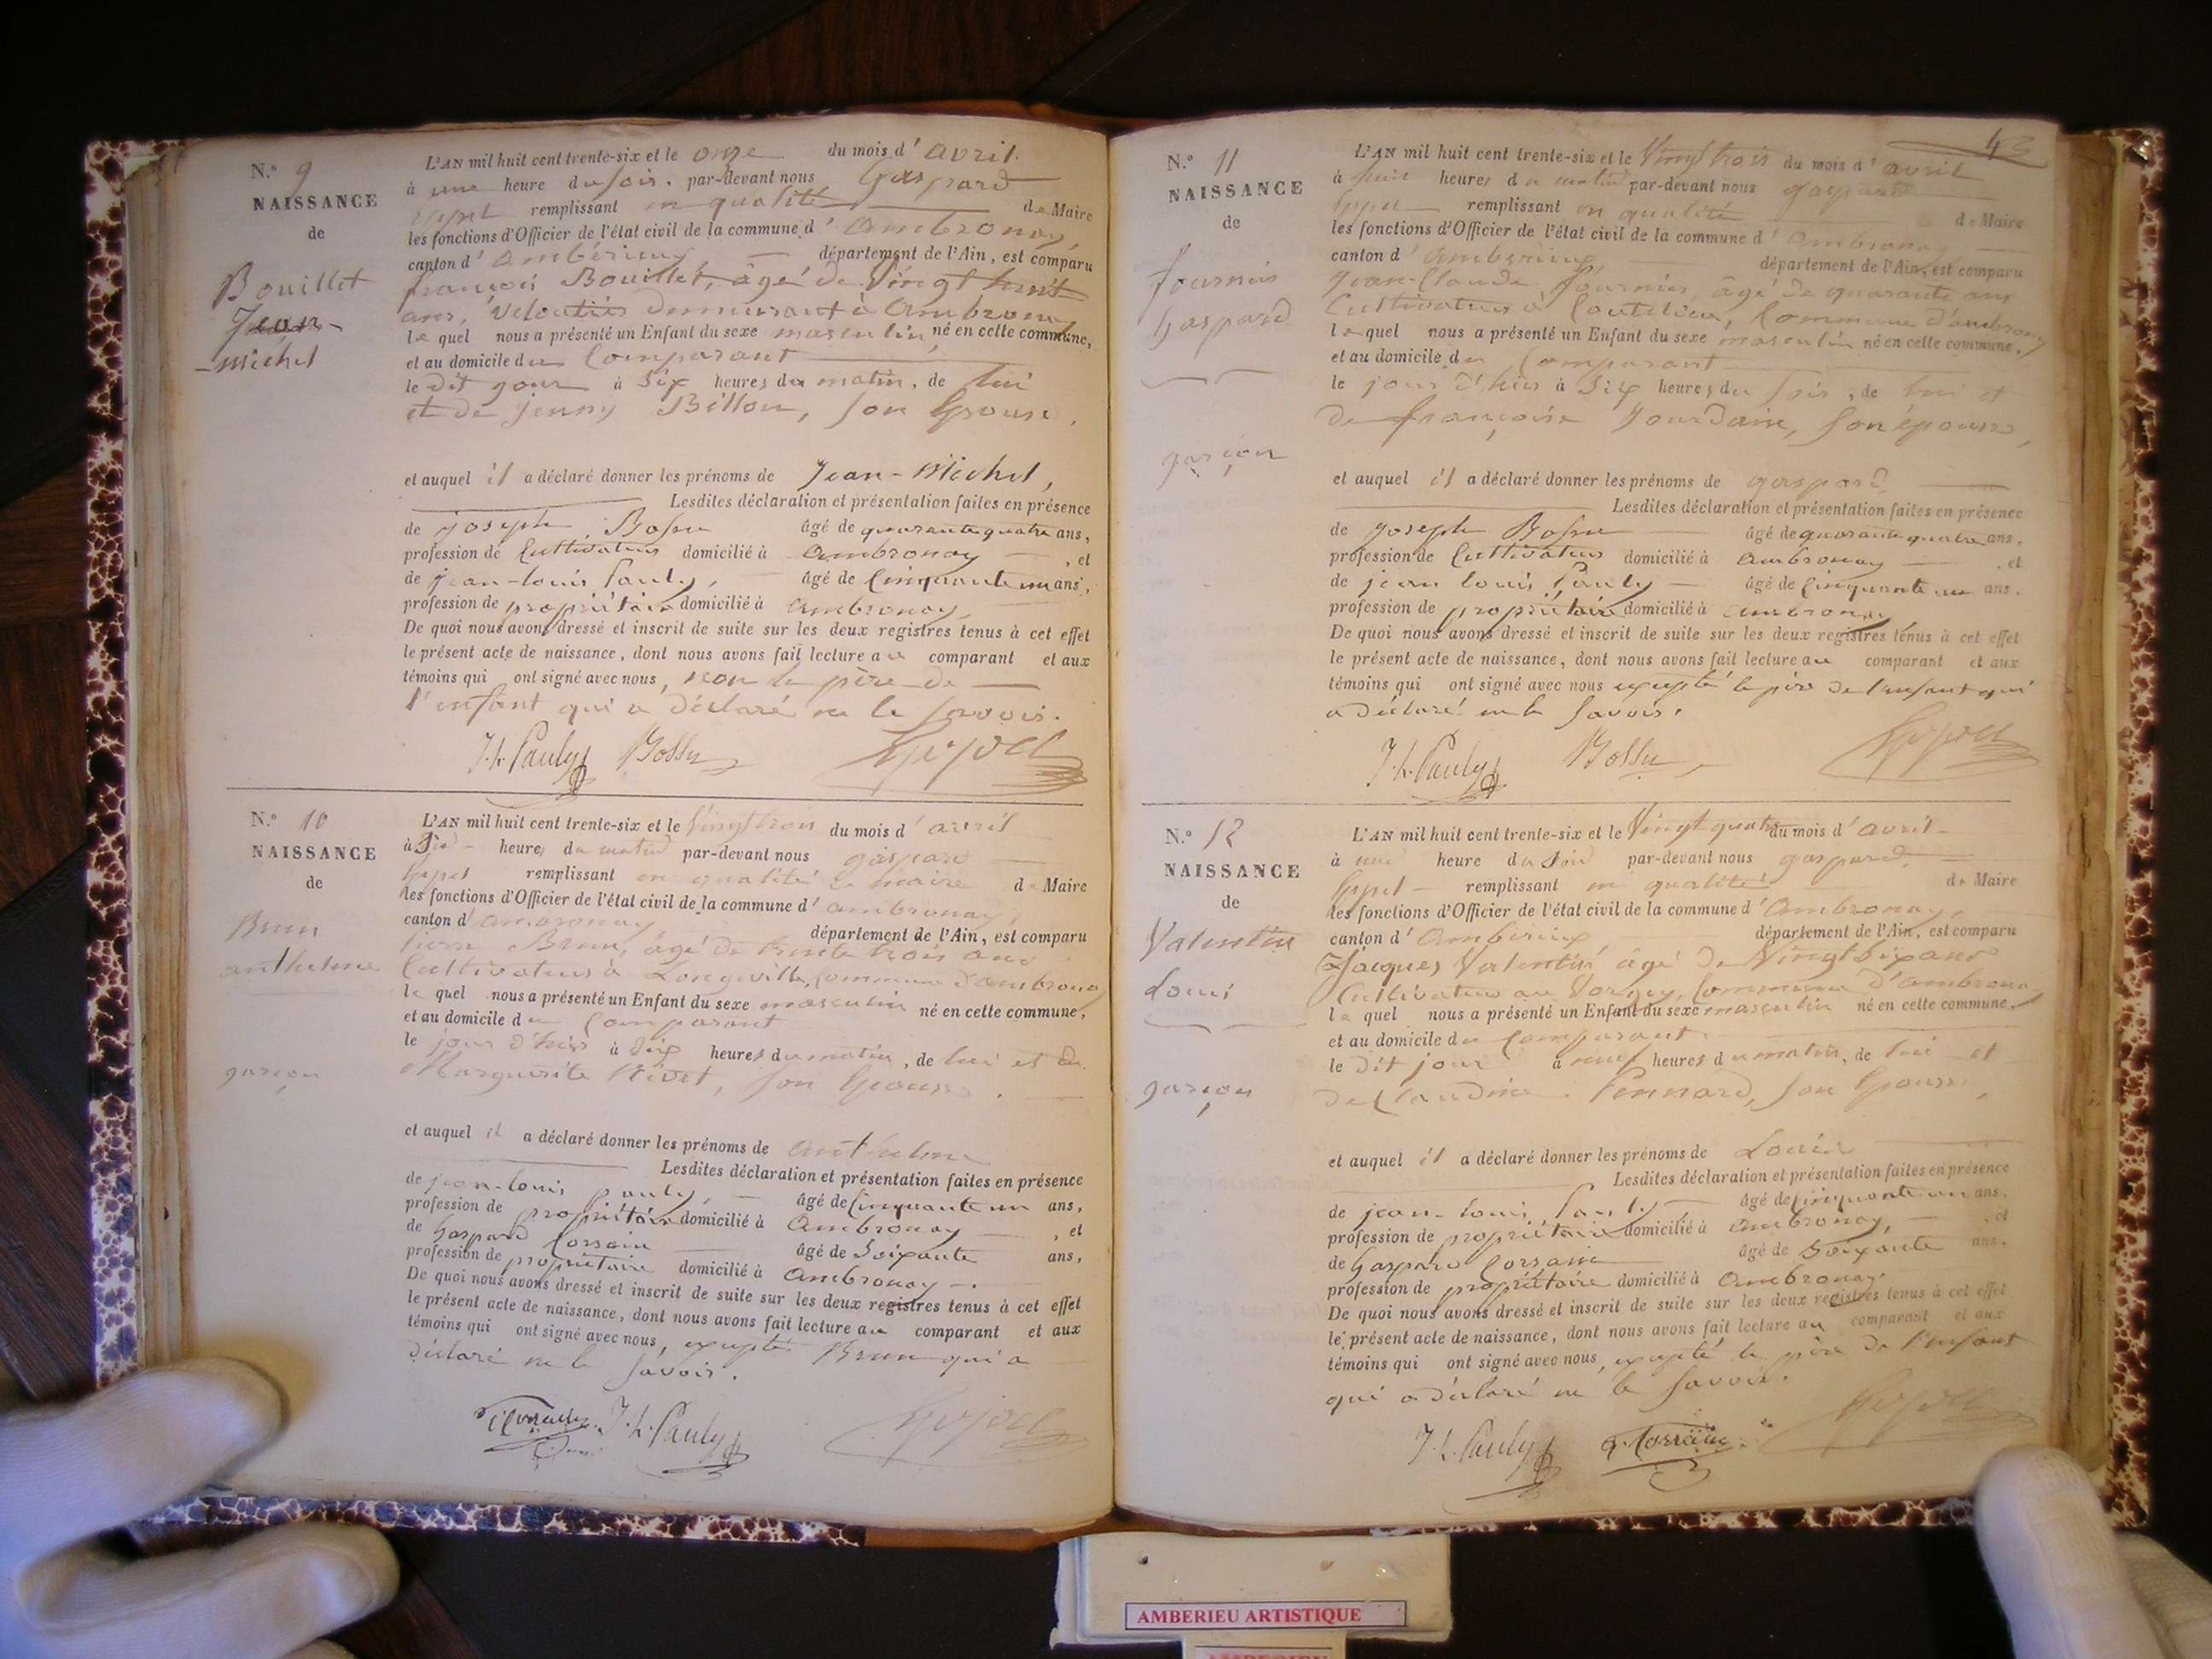 N.o 9
NAISSANCE
de
Bouillet
Jean-
Michel
L'AN mil huit cent trente-six et le onze du mois d'avril
à une heure du soir. par-devant nous Gaspard
remplissant en qualité de Maire
les fonctions d'Officier de l'état civil de la commune d'Ambronay,
canton d'Ambérieux département de l'Ain, est comparu
françois Bouillet, âgé de vingt huit
ans, demeurant à Ambronay
lequel nous a présenté un Enfant du sexe masculin, né en cette commune,
et au domicile du Comparant
le dit jour à six heures du matin, de lui
et de jenny Billon, son Epouse,
et auquel il a déclaré donner les prénoms de Jean-Michel,
Lesdites déclaration et présentation faites en présence
de joseph Bossu âgé de quarante quatre ans,
profession de Cultivateur domicilié à Ambronay, et
de jean-louis Pauly, âgé de Cinquante un ans,
profession de propriétaire domicilié à Ambronay,
De quoi nous avons dressé et inscrit de suite sur les deux registres tenus à cet effet
le présent acte de naissance, dont nous avons fait lecture au comparant et aux
témoins qui ont signé avec nous, non le père de
l'enfant qui a déclaré ne le savoir.
J. L. Pauly Bossu
N.o 10
NAISSANCE
de
Brun
anthelme
garçon
L'AN mil huit cent trente-six et le vingt trois du mois d'avril
à heures du matin par-devant nous gaspard
remplissant en qualité de maire de Maire
les fonctions d'Officier de l'état civil de la commune d'ambronay,
canton d'ambronay département de l'Ain, est comparu
Pierre Brun, âgé de trente trois ans
Cultivateur à Longeville, Commune d'ambronay
lequel nous a présenté un Enfant du sexe masculin né en cette commune,
et au domicile du Comparant
le jour d'hier à dix heures du matin, de lui et de
Marguerite Rivet, son Epouse.
et auquel il a déclaré donner les prénoms de anthelme
Lesdites déclaration et présentation faites en présence
de jean-louis Pauly, âgé de Cinquante un ans,
profession de propriétaire domicilié à Ambronay, et
de Gaspard Corsain âgé de Soixante ans,
profession de propriétaire domicilié à Ambronay.
De quoi nous avons dressé et inscrit de suite sur les deux registres tenus à cet effet
le présent acte de naissance, dont nous avons fait lecture au comparant et aux
témoins qui ont signé avec nous, excepté Brun qui a
déclaré ne le savoir.
J. L. Pauly
43
N.o 11
NAISSANCE
de
fournier
Gaspard
garçon
L'AN mil huit cent trente-six et le Vingt trois du mois d'avril
à heures du matin par-devant nous gaspard
remplissant en qualité de Maire
les fonctions d'Officier de l'état civil de la commune d'Ambronay
canton d'Ambérieux département de l'Ain, est comparu
Jean-Claude fournier, âgé de quarante ans
Cultivateur à Commune d'ambronay
lequel nous a présenté un Enfant du sexe masculin né en cette commune,
et au domicile du Comparant
le jour d'hier à six heures du soir, de lui et
de françoise Jourdain, son épouse,
et auquel il a déclaré donner les prénoms de gaspard
Lesdites déclaration et présentation faites en présence
de Joseph Bossu âgé de quarante quatre ans,
profession de Cultivateur domicilié à Ambronay, et
de jean louis Pauly âgé de Cinquante un ans,
profession de propriétaire domicilié à ambronay
De quoi nous avons dressé et inscrit de suite sur les deux registres tenus à cet effet
le présent acte de naissance, dont nous avons fait lecture au comparant et aux
témoins qui ont signé avec nous excepté le père de l'enfant qui
a déclaré ne le savoir.
J. L. Pauly Bossu
N.o 12
NAISSANCE
de
Valentin
Louis
garçon
L'AN mil huit cent trente-six et le Vingt quatre du mois d'avril
à une heure du soir par-devant nous gaspard
remplissant en qualité de Maire
les fonctions d'Officier de l'état civil de la commune d'Ambronay,
canton d'Ambérieux département de l'Ain, est comparu
Jacques Valentin âgé de Vingt six ans
Cultivateur au Commune d'Ambronay
lequel nous a présenté un Enfant du sexe masculin né en cette commune,
et au domicile du Comparant
le dit jour à neuf heures du matin, de lui et
de Claudine Pennard, son Epouse,
et auquel il a déclaré donner les prénoms de Louis
Lesdites déclaration et présentation faites en présence
de jean-louis Pauly âgé de Cinquante un ans,
profession de propriétaire domicilié à Ambronay, et
de Gaspard Corsain âgé de Soixante ans,
profession de propriétaire domicilié à Ambronay.
De quoi nous avons dressé et inscrit de suite sur les deux registres tenus à cet effet
le présent acte de naissance, dont nous avons fait lecture au comparant et aux
témoins qui ont signé avec nous, excepté le père de l'enfant
qui a déclaré ne le savoir.
J. L. Pauly
AMBERIEU ARTISTIQUE
AMBERIEU